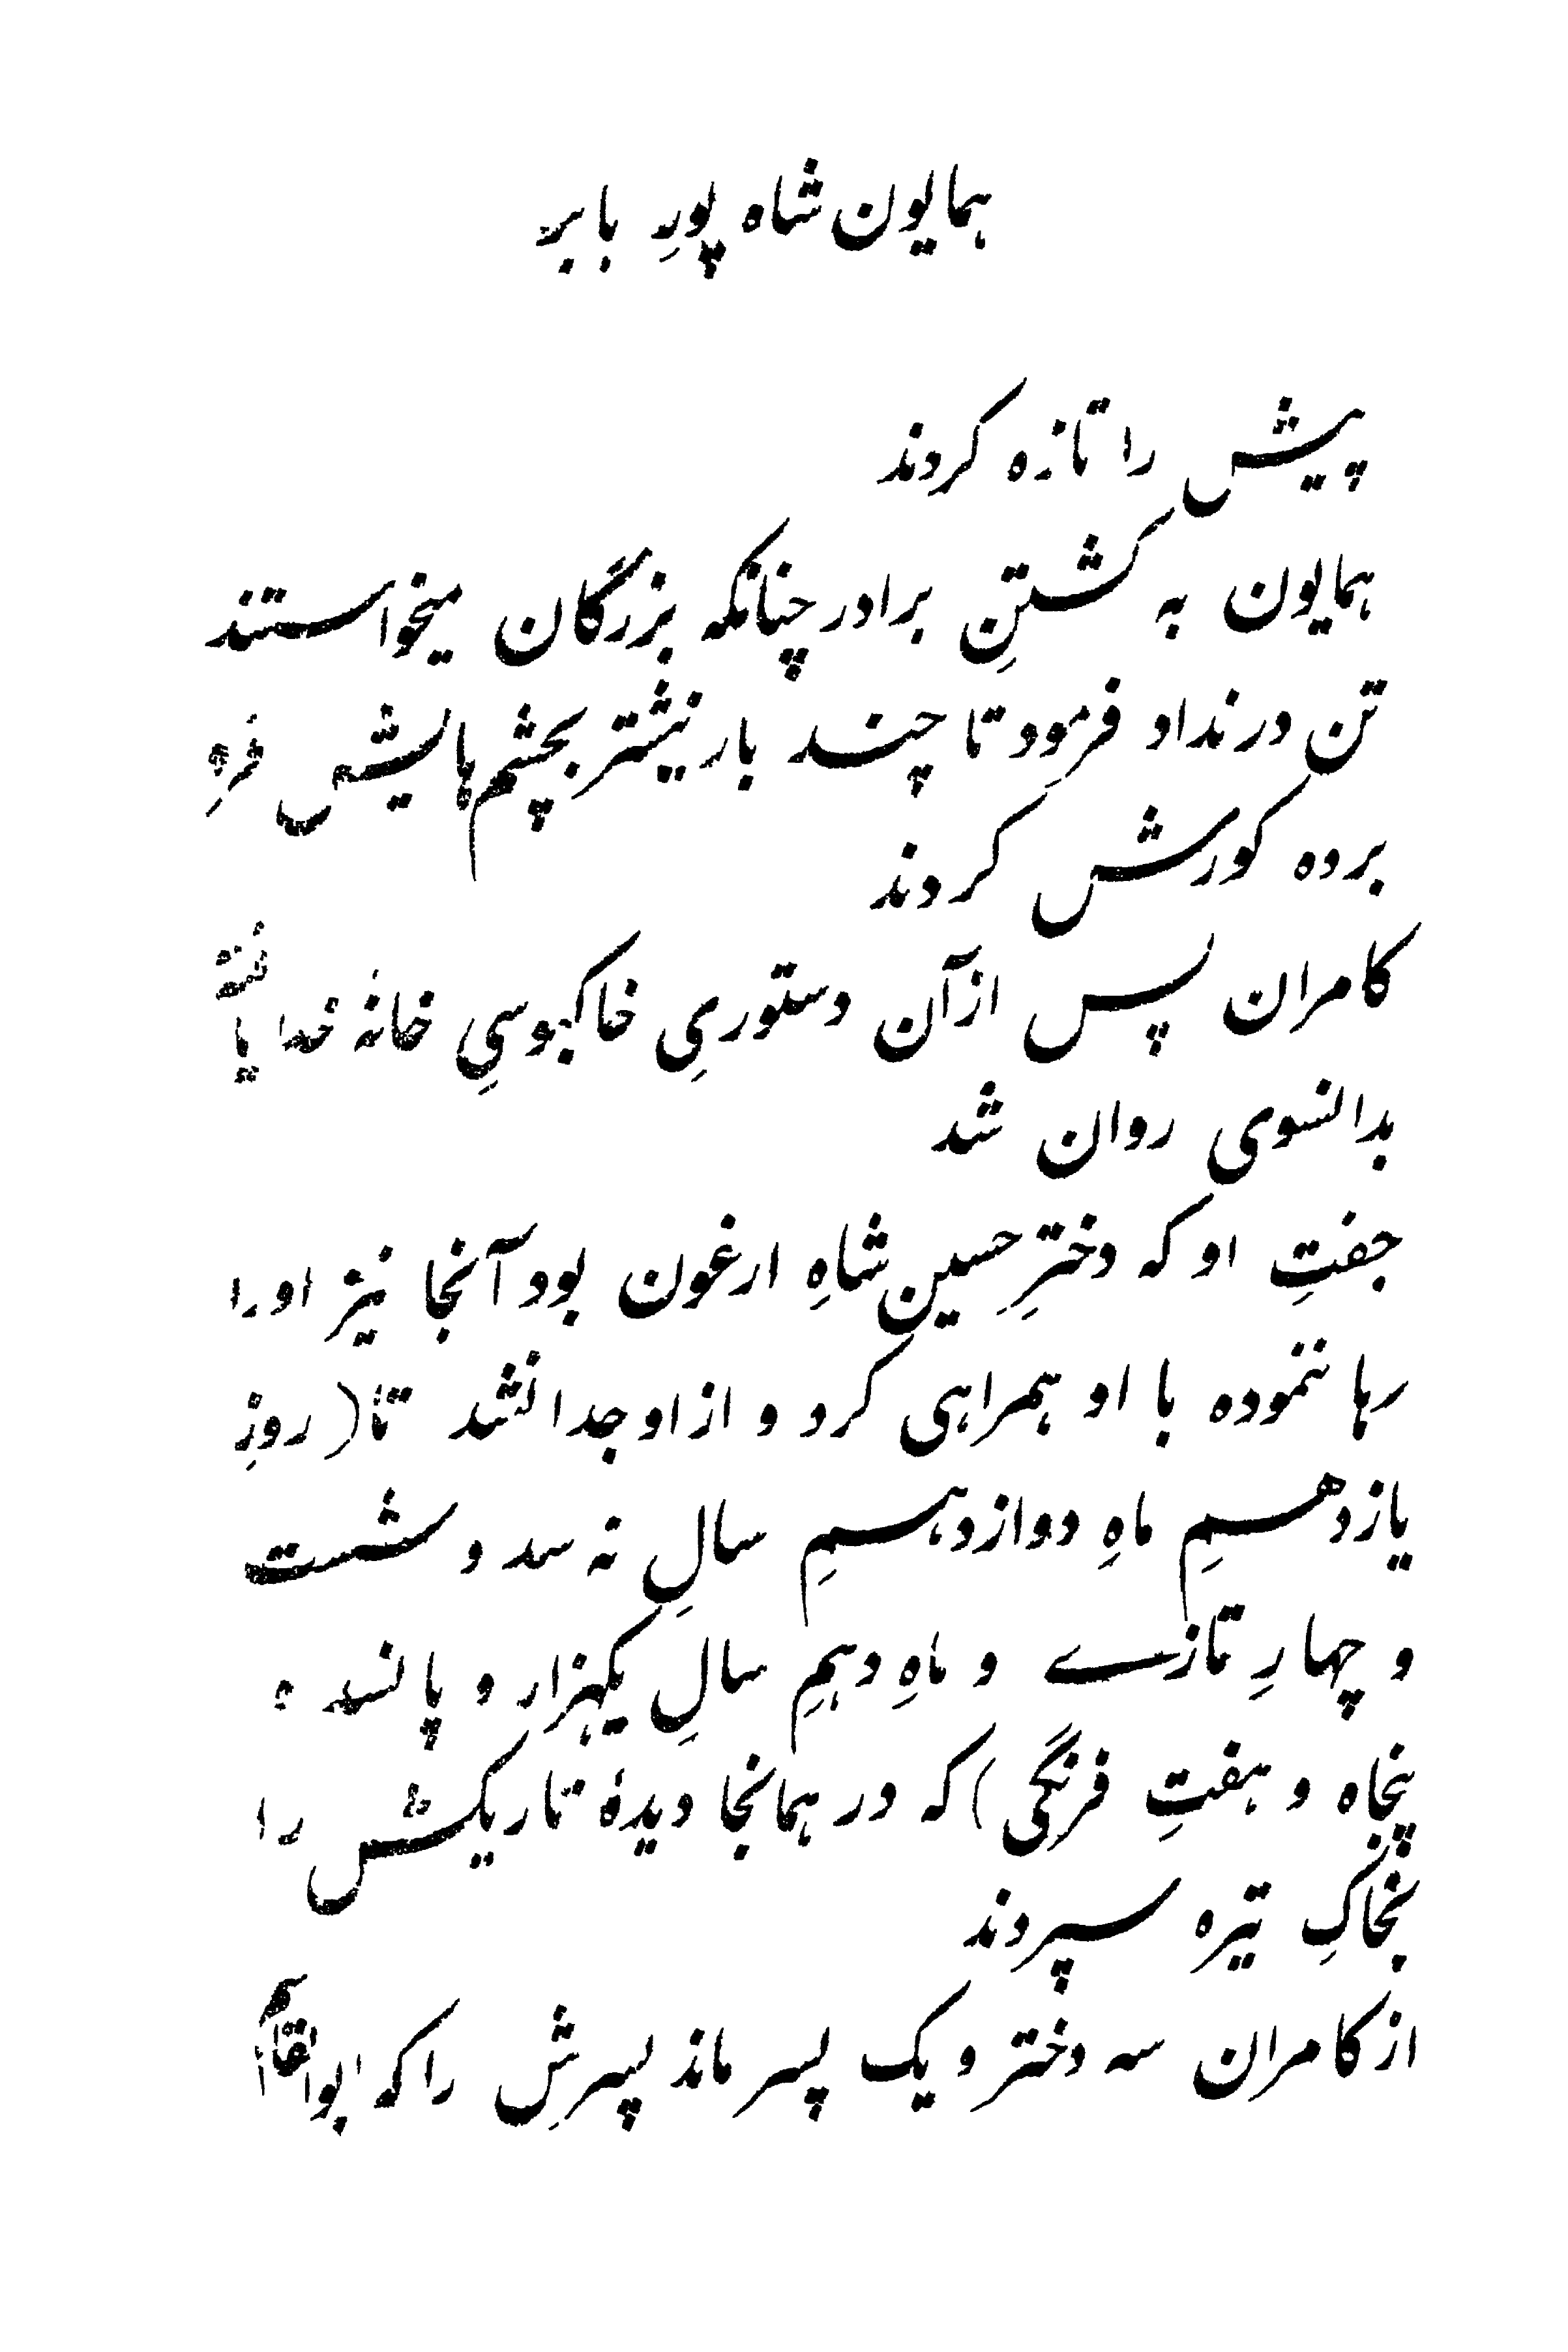 همایون شاه پورِ بابر
پیش را تازه کردند
همایون به کشتنِ برادر چنانکه بزرگان میخواستند
تن در نداد و فرمود تا چند بار نیشتر بچشم هایش فرو
برده کورش کردند
کامران پس ازآن دستوریِ خاکبوسیِ خانهٔ خدا یافته
بدانسوی روان شد
جفتِ او که دخترِ حسین شاهِ ارغون بود آنجا نیز او را
رها ننموده با او همراهی کرد و از او جدا نشد تا (روزِ
یازدهمِ ماهِ دوازدهمِ سالِ نه سد و شست
و چهارِ تازے و ماهِ دهمِ سالِ یکهزار و پانسد و
پنجاه و هفتِ فرنگی) که در همانجا دیدهٔ تاریکش را
بخاکِ تیره سپردند
از کامران سه دختر و یک پسر ماند پسرش را که ابوالقاسم